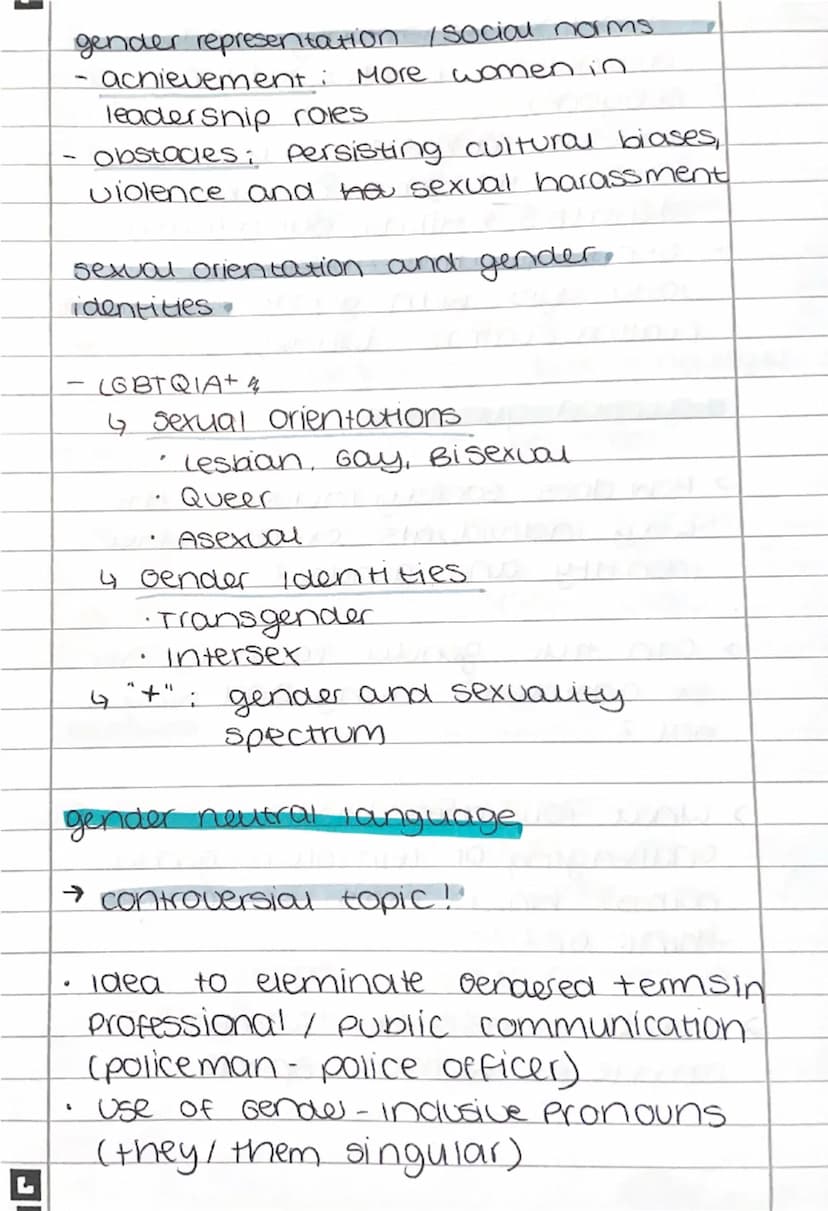 gender representation / social norms
- achievement: More women in
leadership roles
- obstacles: persisting cultural biases,
violence and sexual harassment
sexual orientation and gender
identities
- LGBTQIA+
↳ sexual orientations
· Lesbian, Gay, Bisexual
· Queer
· Asexual
↳ Gender Identities
· Transgender
· Intersex
↳ "+": gender and sexuality
spectrum
gender neutral language
→ controversial topic!
· idea to eleminate Gendered terms in
professional / public communication
(policeman - police officer)
· use of Gender-inclusive pronouns
(they/them singular)